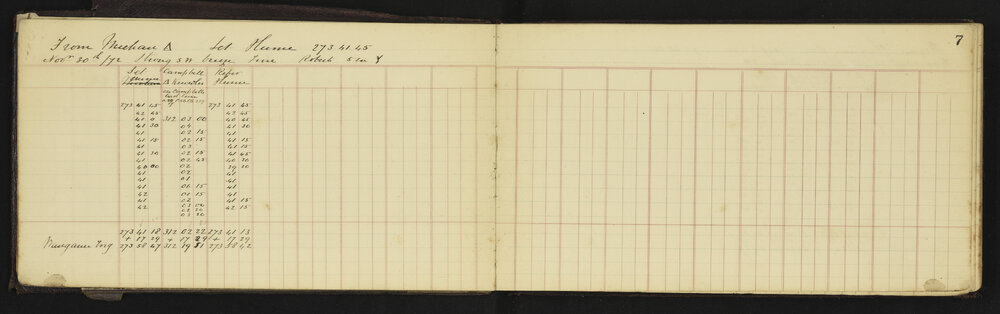 7
From Meehan Δ Set Hume 273 41 45
Novr 30th /72 Strong S.W. breeze Fine Robert
Set Campbell Refer
Hume Δ Hume
on Campbell
273 41 45 273 41 45
42 45 42 45
41 0 312 03 00 40 45
41 30 04 41 30
41 02 15 41
41 15 02 15 41 15
41 03 41 15
41 30 02 15 41 45
41 02 45 40 30
40 30 02 39 30
41 02 41
41 01 41
41 06 15 41
42 01 15 41
41 02 41 15
42 03 00 42 15
03 30
03 30
273 41 18 312 02 22 273 41 13
+ 17 29 + 17 29 + 17 29
273 58 47 312 19 51 273 58 42